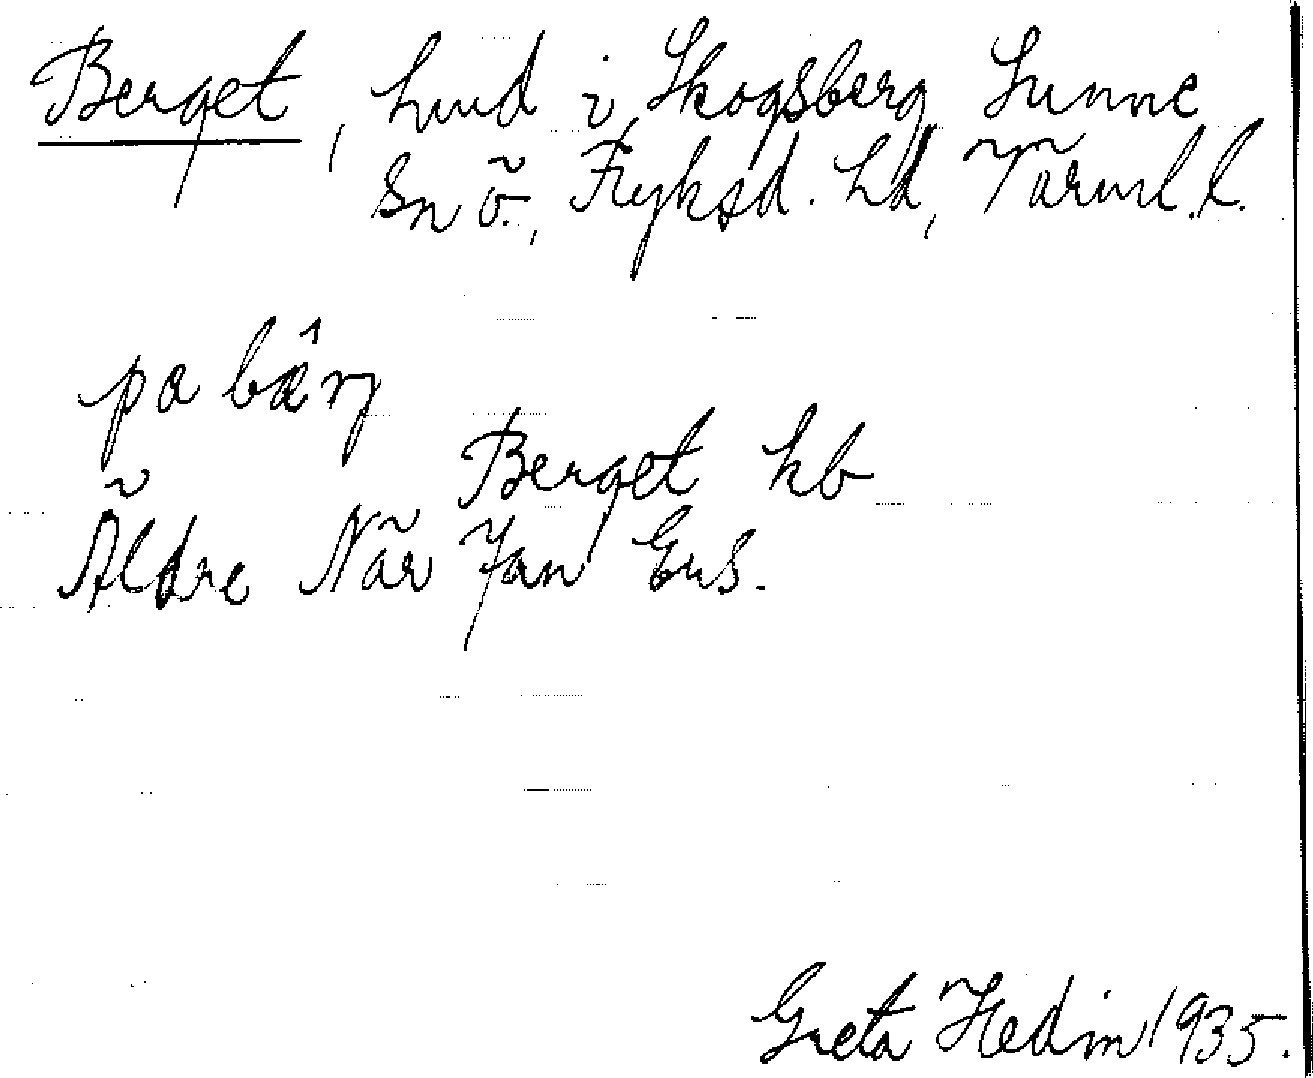 Berget, hmd i Skogsberg, Sunne
sn ö., Fryksd. hd, Värml. l.
pa bârj
Berget kb
Äldre När Jan Ers.
Greta Hedin 1935.